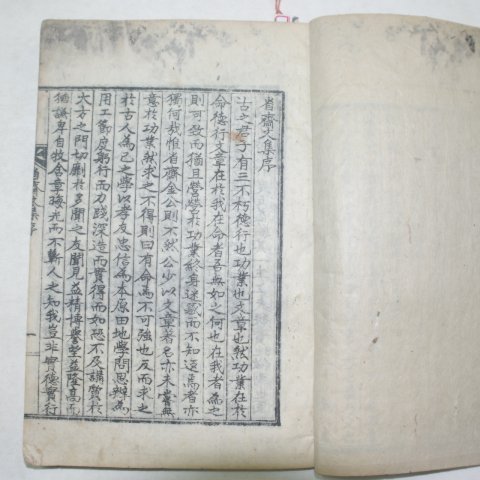 省齋文集序
古之君子有三不朽德行也功業也文章也然功業在於
命德行文章在於我在命者吾無如之何也在我者為之
則可致而猶且營營於功業終身迷而不知返焉者亦
獨何哉惟省齋金公則不然公少以文章著名亦未嘗無
意於功業然求之不得則曰有命焉不可強也反而求之
於古人為己之學以孝友忠信為本原田地學問思辨為
用工節度躬行而力踐深造而實得而如恐不及講質於
大方之門切劘於多聞之友聞見益精博譽望益隆高而
猶謙卑自牧含章晦光而不蘄人之知我豈非實德實行
省齋文集序
一